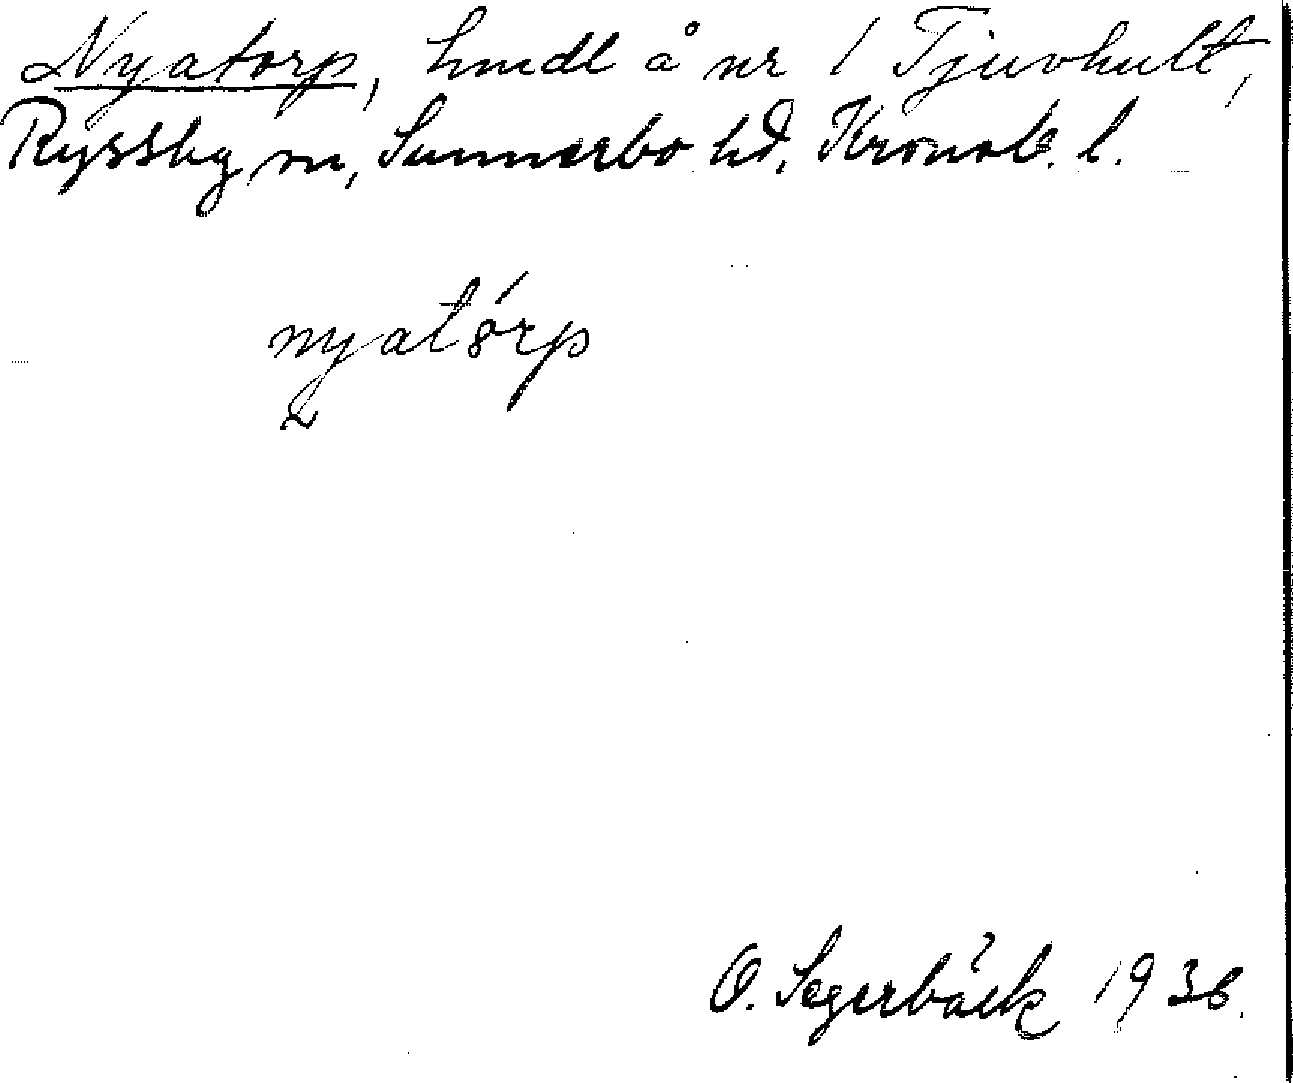 Nyatorp, hmdl å nr 1 Tjuvhult,
Ryssby sn, Sunnerbo hd, Kronob. l.
nyatórp
O. Segerbäck 1936.